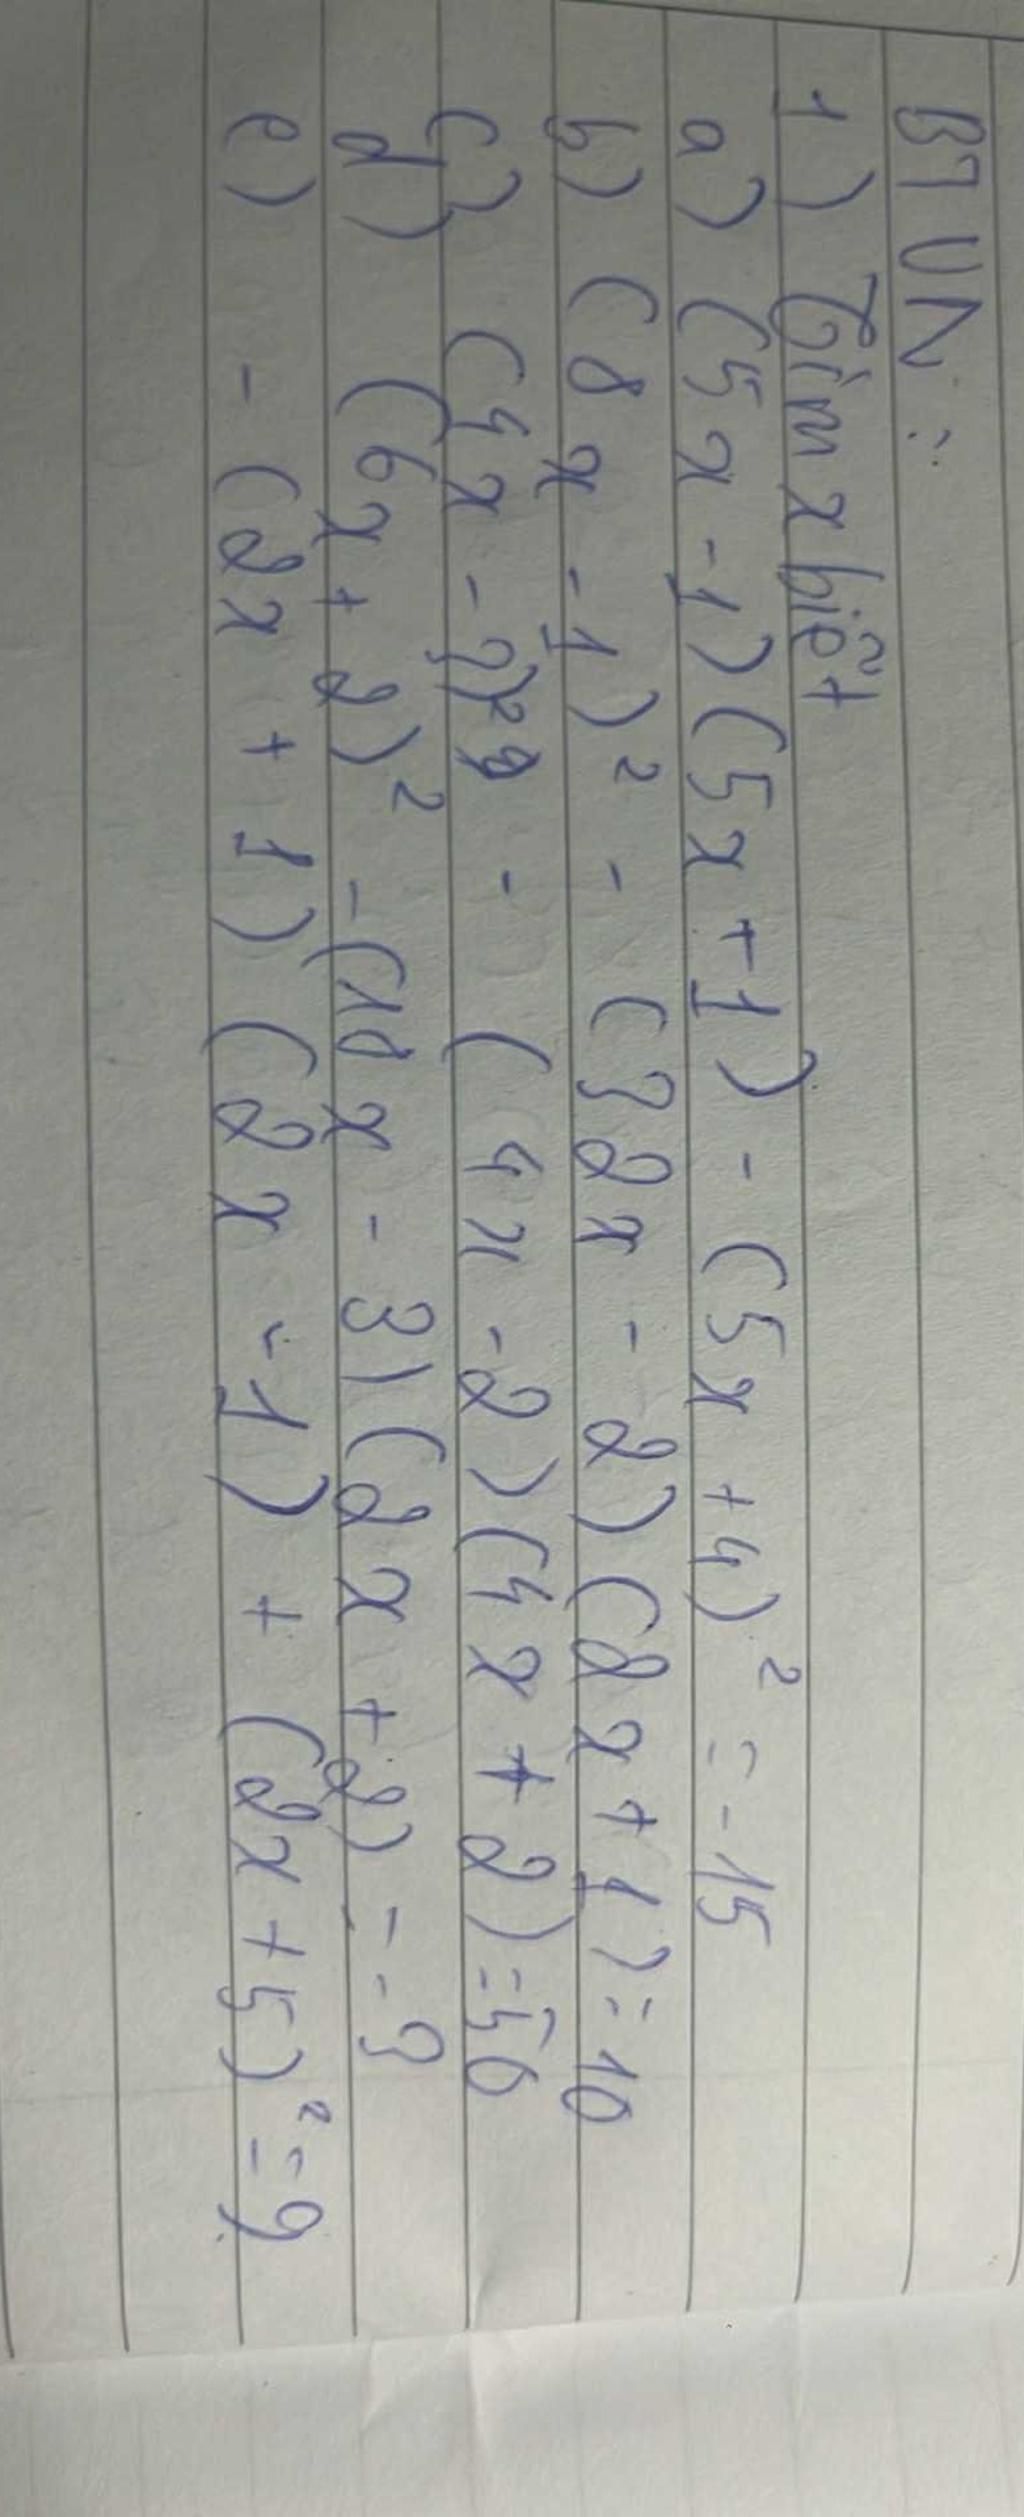 BTVN :
1) Tìm x biết
a) (5x - 1)(5x + 1) - (5x + 4)² = -15
b) (8x - 1)² - (32x - 2)(2x + 1) = 10
c) (4x - 3)² - (4x - 2)(4x + 2) = 56
d) (6x + 2)² - (18x - 3)(2x + 2) = -3
e) - (2x + 1)(2x - 1) + (2x + 5)² = 9